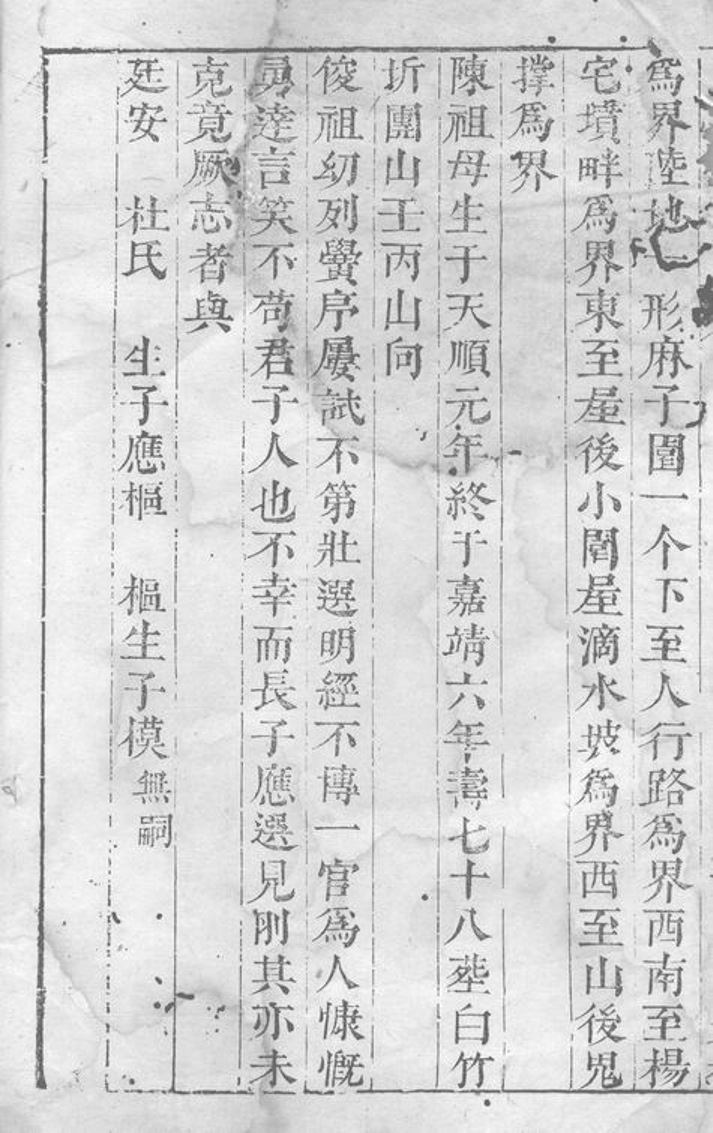 為界陸地一形麻子園一个下至人行路為界西南至楊
宅墳畔為界東至屋後小閣屋滴水坡為界西至山後
撑為界
陳祖母生于天順元年終于嘉靖六年壽七十八塟白竹
圻團山壬丙山向
俊祖幼列黌序屢試不第壯選明經不博一官為人慷慨
勇達言笑不苟君子人也不幸而長子應選見刖其亦未
克竟厥志者與
廷安 杜氏 生子應樞 樞生子模無嗣